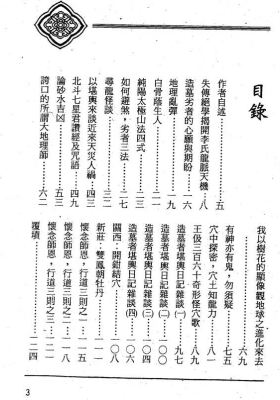 目錄
作者自述……五
失傳絕學揭開李氏龍脈天機……八
造墓劣者的心願與期盼……一六
地理亂彈……一九
白骨蔭生人……
純陽太極山法四式……二三
如何避煞，劣者三法……二七
尋龍怪談……
以堪輿來談近來天災人禍……四三
北斗七星君讚經及咒語……四九
論砂水吉凶……五三
誇口的所謂大地理師……六二
我以樹花的顯像觀地球之進化來去……六九
有神亦有鬼，勿須疑……七五
穴中探密，穴土知龍力……八一
王伋三百六十奇形怪穴歌……
造墓者堪輿日記雜談(一)……九七
造墓者堪輿日記雜談(二)……一〇〇
造墓者堪輿日記雜談(三)……一〇二
造墓者堪輿日記雜談(四)……一〇四
關西：開鉗結穴……一〇八
新莊：雙鳳朝牡丹……
懷念師恩，行道三則之一……一一五
懷念師恩，行道三則之二……一一八
懷念師恩，行道三則之三……一二一
覆墳……一二四
3